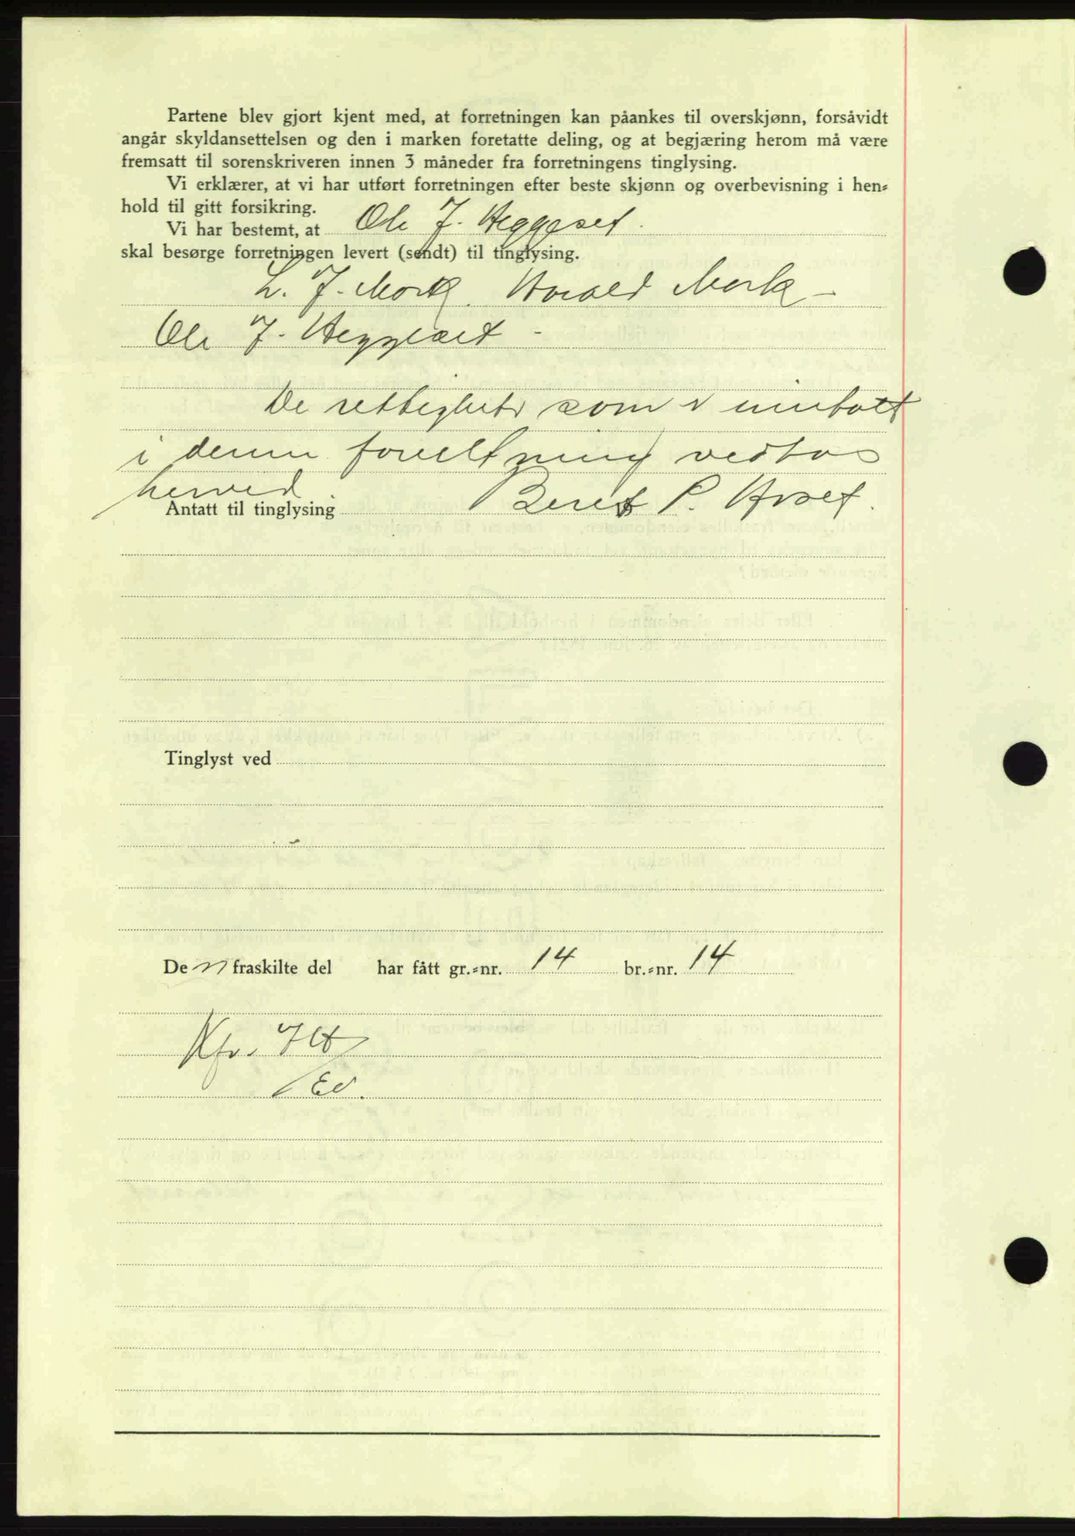 Partene blev gjort kjent med, at forretningen kan påankes til overskjønn, forsåvidt
angår skyldansettelsen og den i marken foretatte deling, og at begjæring herom må være
fremsatt til sorenskriveren innen 3 måneder fra forretningens tinglysing.
Vi erklærer, at vi har utført forretningen efter beste skjønn og overbevisning i hen-
hold til gitt forsikring.
Vi har bestemt, at Ole J. Heggeset.
skal besørge forretningen levert (sendt) til tinglysing.
L. J. Mork. Harald Mork -
Ole J. Heggeset -
De rettigheter som er inntatt
i denne forretning vedtas
herved
Antatt til tinglysing Beret P.
Tinglyst ved
Den fraskilte del har fått gr.-nr. 14 br.-nr. 14